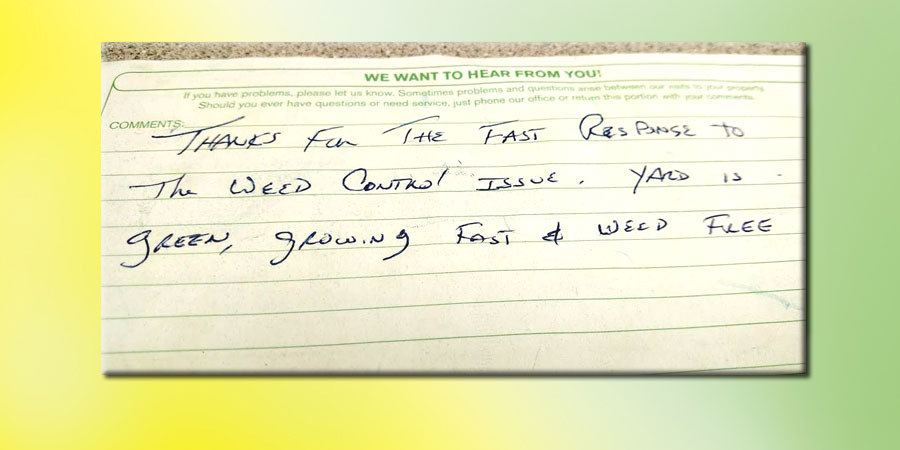 WE WANT TO HEAR FROM YOU!
If you have problems, please let us know. Sometimes problems and questions arise between our visits to your property.
Should you ever have questions or need service, just phone our office or return this portion with your comments.
COMMENTS:
THANKS FOR THE FAST RESPONSE TO
The WEED CONTROL ISSUE. YARD IS
GREEN, GROWING FAST & WEED FREE